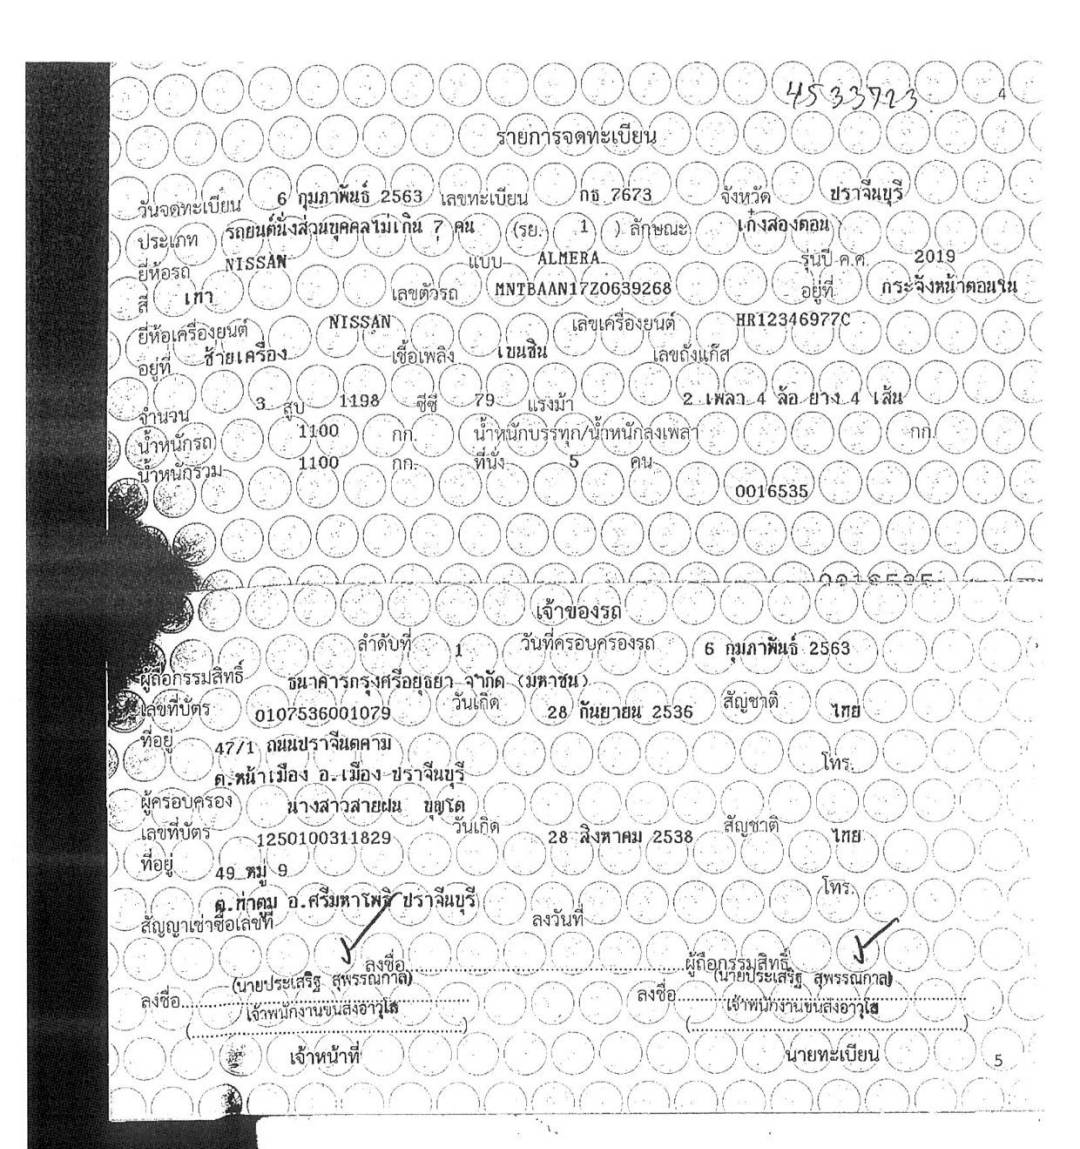 4533723
4
รายการจดทะเบียน
วันจดทะเบียน 6 กุมภาพันธ์ 2563 เลขทะเบียน กธ 7673 จังหวัด ปราจีนบุรี
ประเภท รถยนต์นั่งส่วนบุคคลไม่เกิน 7 คน (รย. 1 ) ลักษณะ เก๋งสองตอน
ยี่ห้อรถ NISSAN แบบ ALMERA รุ่นปี ค.ศ. 2019
สี เทา เลขตัวรถ MNTBAAN17Z0639268 อยู่ที่ กระจังหน้าตอนใน
ยี่ห้อเครื่องยนต์ NISSAN เลขเครื่องยนต์ HR12346977C
อยู่ที่ ซ้ายเครื่อง เชื้อเพลิง เบนซิน เลขถังแก๊ส
จำนวน 3 สูบ 1198 ซีซี 79 แรงม้า 2 เพลา 4 ล้อ ยาง 4 เส้น
น้ำหนักรถ 1100 กก. น้ำหนักบรรทุก/น้ำหนักลงเพลา กก.
น้ำหนักรวม 1100 กก. ที่นั่ง 5 คน
0016535
0016535
เจ้าของรถ
ลำดับที่ 1 วันที่ครอบครองรถ 6 กุมภาพันธ์ 2563
ผู้ถือกรรมสิทธิ์ ธนาคารกรุงศรีอยุธยา จำกัด (มหาชน)
เลขที่บัตร 0107536001079 วันเกิด 28 กันยายน 2536 สัญชาติ ไทย
ที่อยู่ 47/1 ถนนปราจีนตคาม โทร.
ต.หน้าเมือง อ.เมือง ปราจีนบุรี
ผู้ครอบครอง นางสาวสายฝน บุญโต
เลขที่บัตร 1250100311829 วันเกิด 28 สิงหาคม 2538 สัญชาติ ไทย
ที่อยู่ 49 หมู่ 9 โทร.
ต.ท่าตูม อ.ศรีมหาโพธิ ปราจีนบุรี
สัญญาเช่าซื้อเลขที่ ลงวันที่
ลงชื่อ ผู้ถือกรรมสิทธิ์
(นายประเสริฐ สุพรรณกาล) (นายประเสริฐ สุพรรณกาล)
ลงชื่อ ลงชื่อ
เจ้าพนักงานขนส่งอาวุโส เจ้าพนักงานขนส่งอาวุโส
เจ้าหน้าที่ นายทะเบียน
5